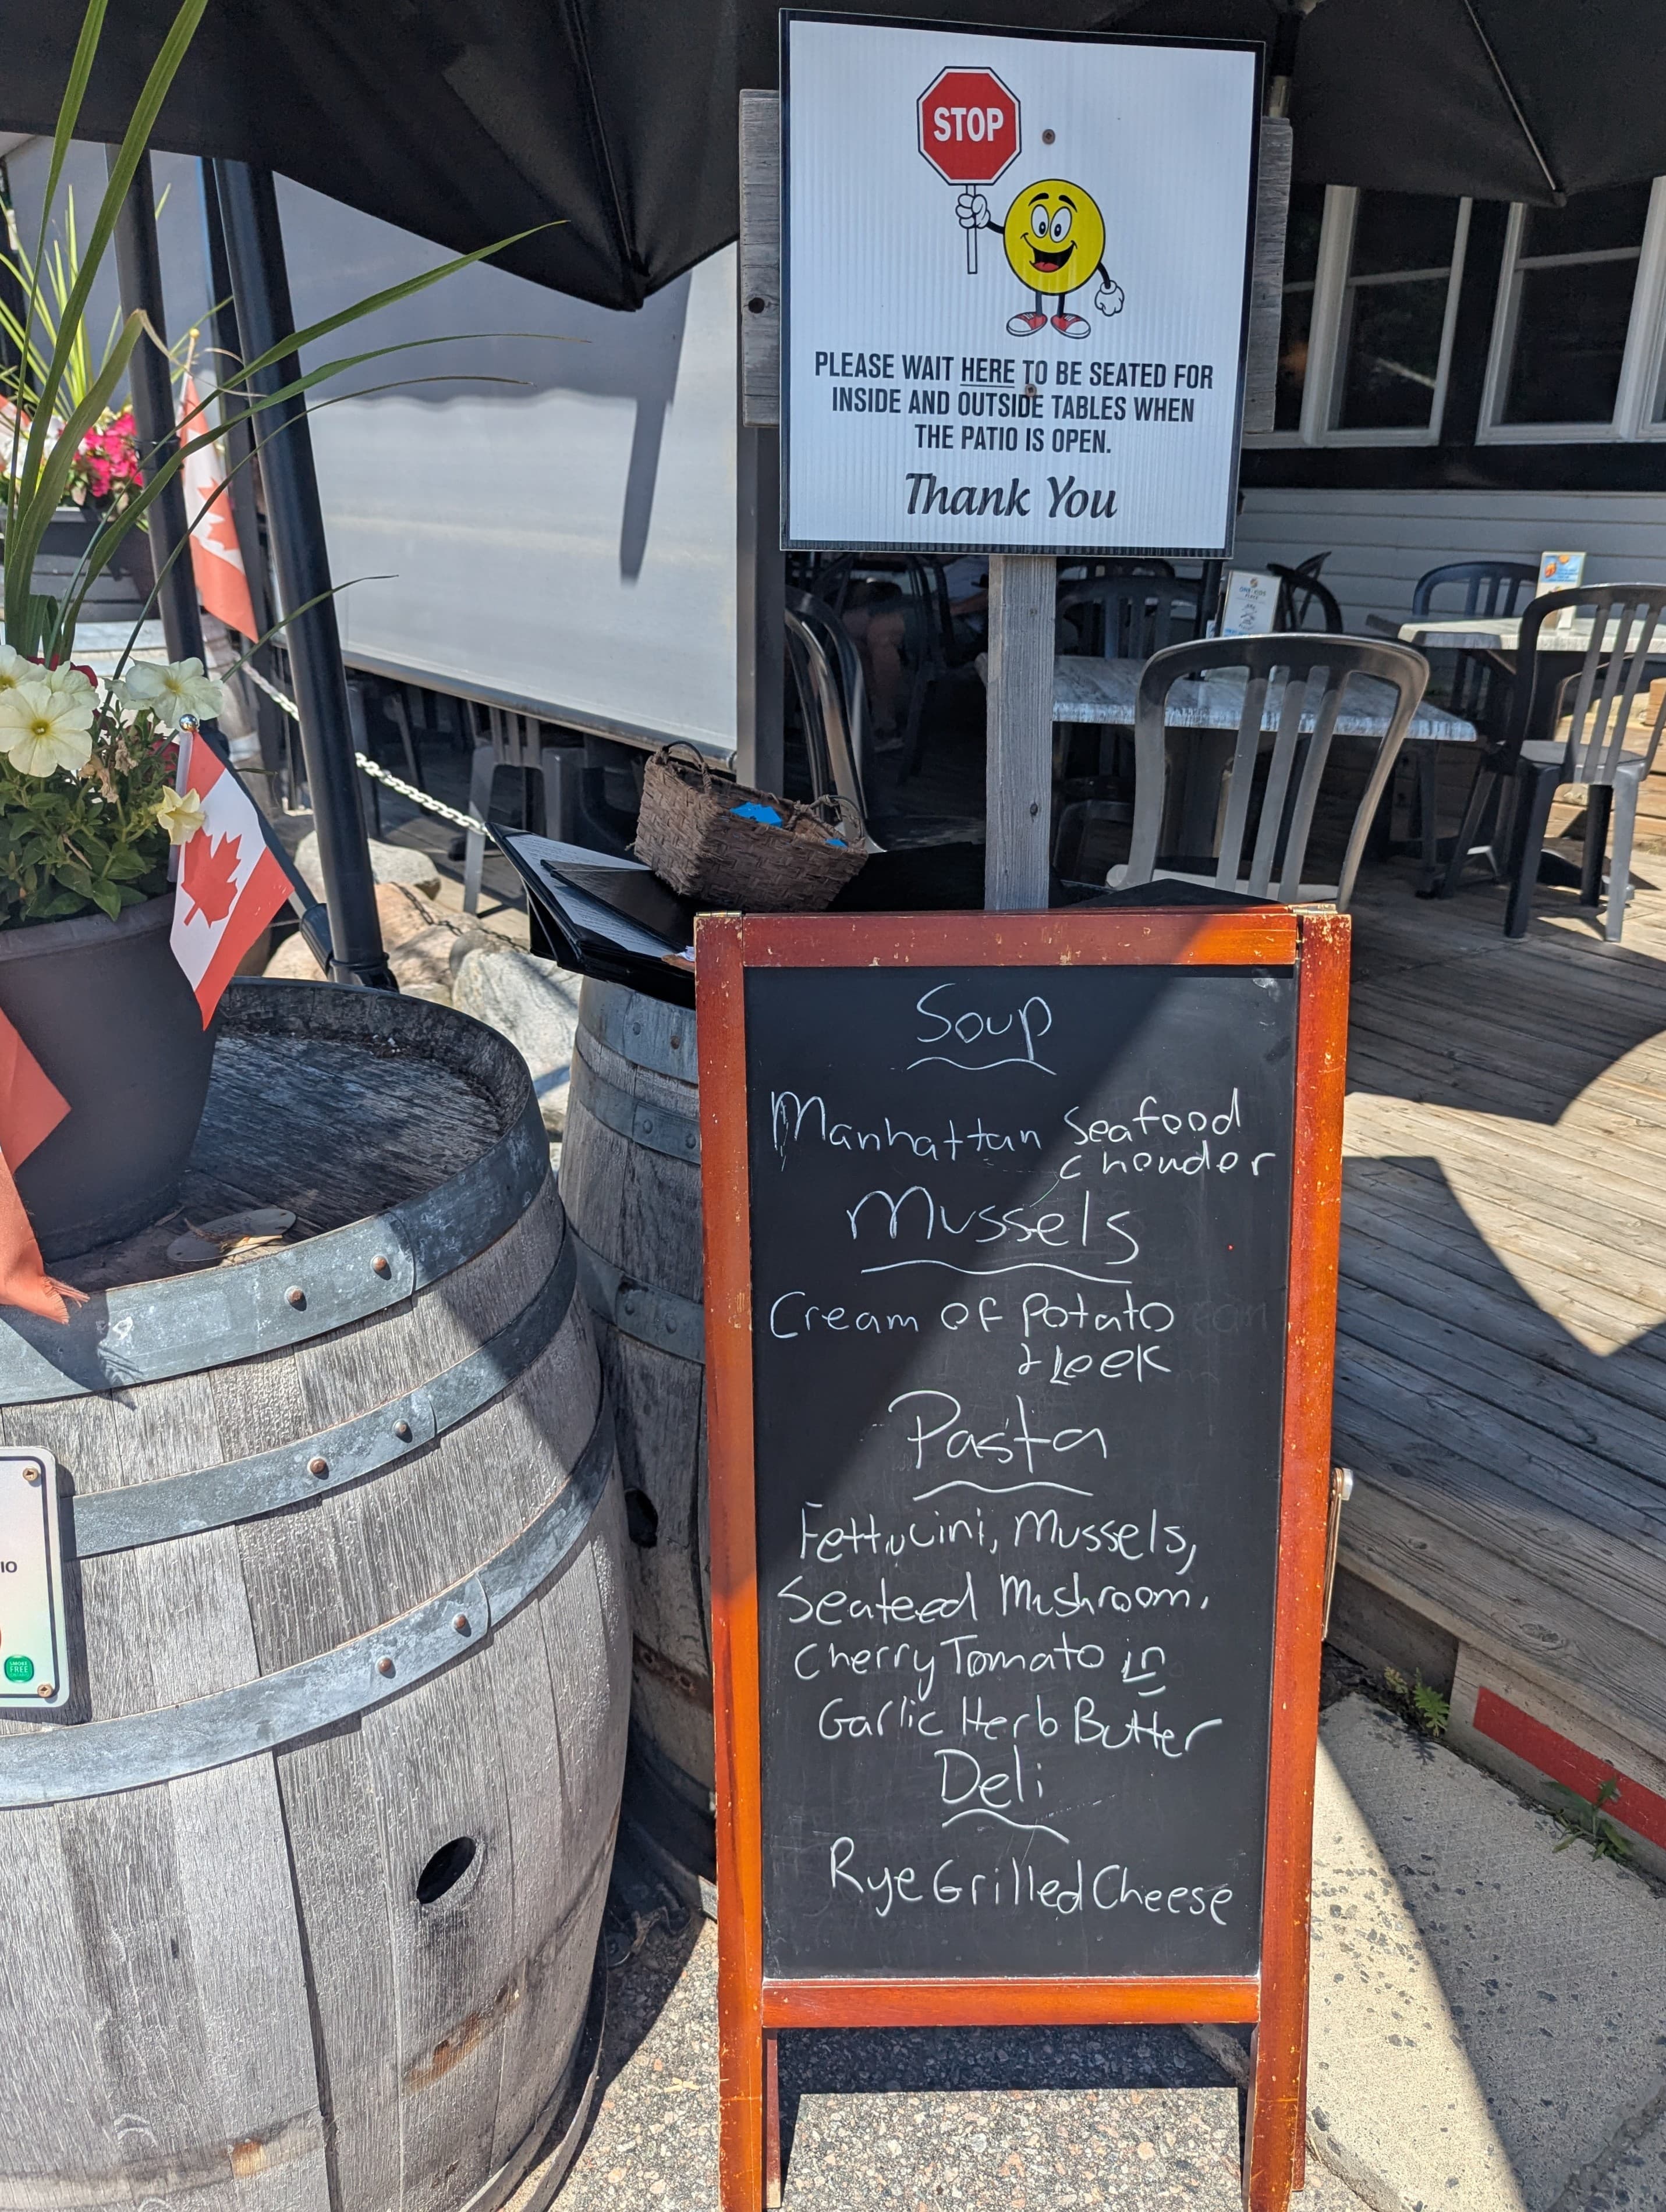 STOP
PLEASE WAIT HERE TO BE SEATED FOR
INSIDE AND OUTSIDE TABLES WHEN
THE PATIO IS OPEN.
Thank You
Soup
Manhattan Seafood
chowder
Mussels
Cream of Potato
& Leek
Pasta
Fettucini, Mussels,
Seateed Mushroom,
Cherry Tomato in
Garlic Herb Butter
Deli
Rye Grilled Cheese
IO
SMOKE
FREE